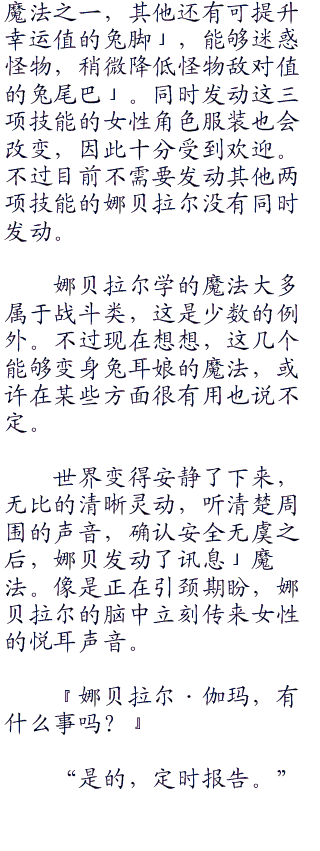 魔法之一，其他还有可提升
幸运值的兔脚」，能够迷惑
怪物，稍微降低怪物敌对值
的兔尾巴」。同时发动这三
项技能的女性角色服装也会
改变，因此十分受到欢迎。
不过目前不需要发动其他两
项技能的娜贝拉尔没有同时
发动。
娜贝拉尔学的魔法大多
属于战斗类，这是少数的例
外。不过现在想想，这几个
能够变身兔耳娘的魔法，或
许在某些方面很有用也说不
定。
世界变得安静了下来，
无比的清晰灵动，听清楚周
围的声音，确认安全无虞之
后，娜贝发动了讯息」魔
法。像是正在引颈期盼，娜
贝拉尔的脑中立刻传来女性
的悦耳声音。
『娜贝拉尔·伽玛，有
什么事吗？』
“是的，定时报告。”